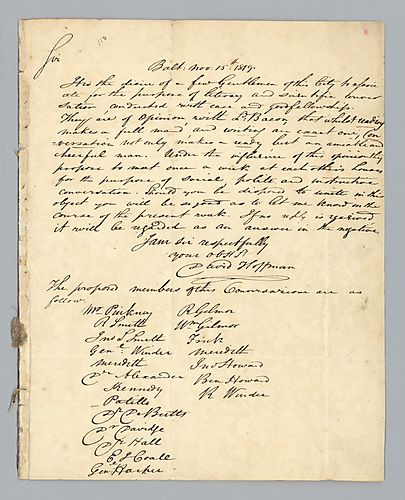 110
Sir
Balt. Nov. 15th 1819.
It is the desire of a few Gentlemen of this City to associ
ate for the purpose of literary and scientific conver
sation conducted with ease and goodfellowship.
They are of opinion with Ld. Bacon that whilst reading
makes a full man and writing an exact one, Con
versation not only makes a ready but an amiable and
cheerful man. Under the influence of this opinion they
propose to meet once a week at each others houses
for the purpose of social, polite and instructive
conversation. Should you be disposed to unite in this
object you will be so good as to let me know in the
course of the present week. If no reply is received
it will be regarded as an answer in the negative
I am Sir respectfully
your Ob St
David Hoffman
The proposed members of this Conversazione are as
follow.
Mr Pinkney
R Smith
Jno S Smith
Genl. Winder
Meredith
Dr Alexander
Kennedy
Patille
Dr De Butts
Dr Davidge
Dr Hall
E. J Coale
Genl Harper
R Gilmor
Wm Gilmor
Finck
Meredith
Jno Howard
Ben Howard
R Winder